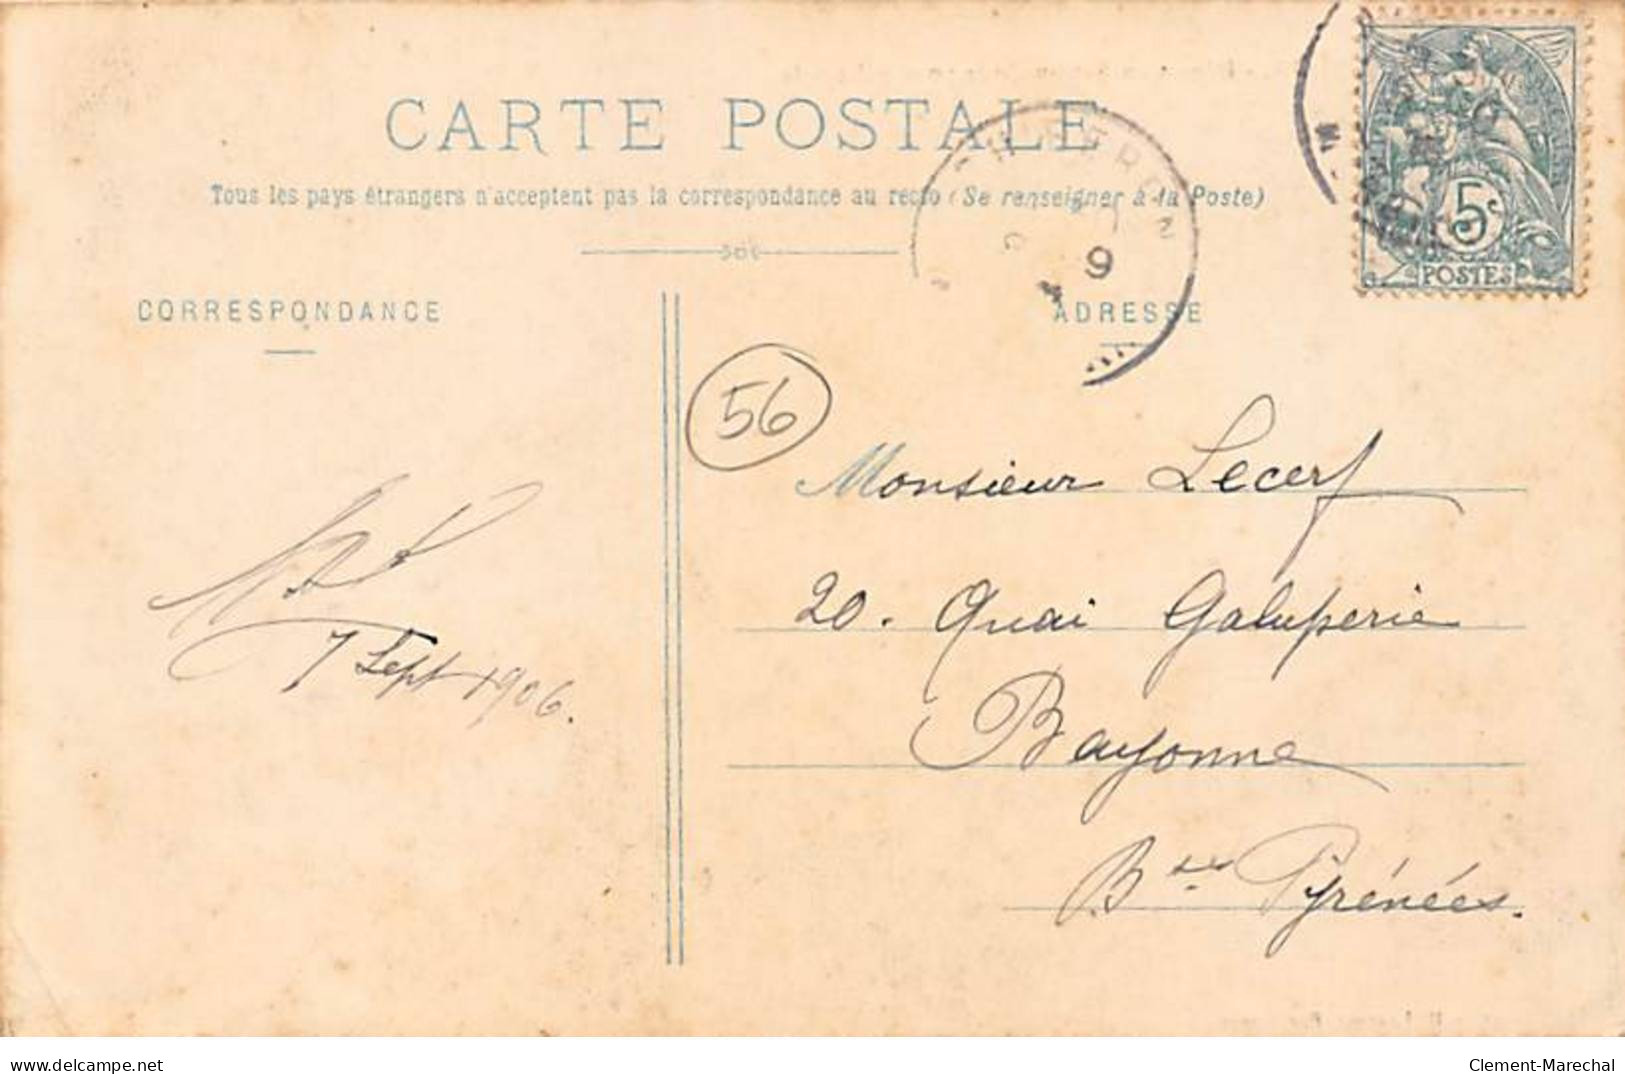 CARTE POSTALE
Tous les pays étrangers n'acceptent pas la correspondance au recto (Se renseigner à la Poste)
CORRESPONDANCE
ADRESSE
5c
POSTES
9
56
Monsieur Lecerf
20. Quai Galuperie
Bayonne
Bses Pyrénées.
7 Sept 1906.
delcampe.net
Clement-Marechal